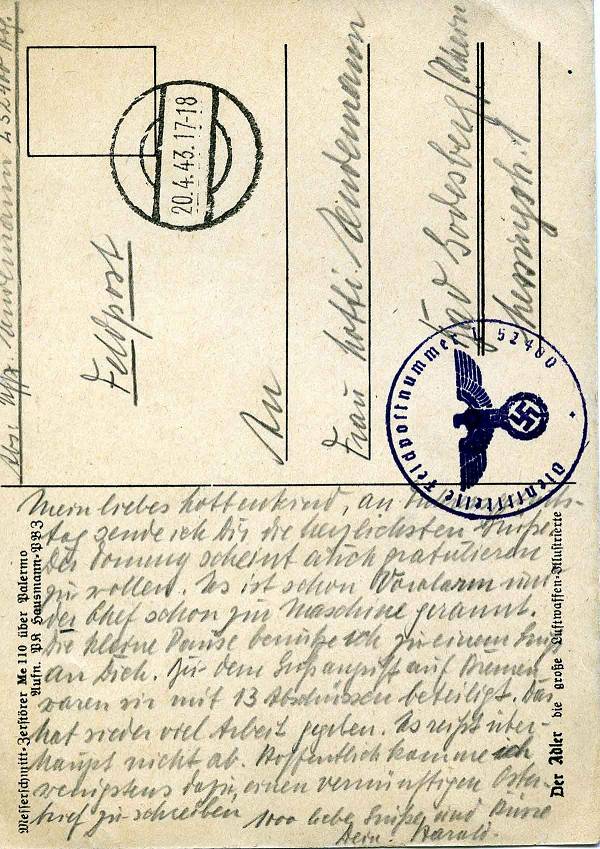 Abs. Uffz. Lindemann L 52400 Lgp.
20.4.43.17-18
Feldpost
An
Frau Lotti Lindemann
Bad Godesberg/Rhein
Lessingstr. 1
Dienststelle Feldpostnummer L 52400
Mein liebes Lottenkind, an
tag sende ich Dir die herzlichsten Grüße.
Der Tommy scheint auch gratulieren
zu wollen. Es ist schon Voralarm und
der Chef schon zur Maschine gerannt.
Die kleine Pause benutze ich zu einem Gruß
an Dich. Zu dem Großangriff auf Bremen
waren wir mit 13 Abschüssen beteiligt. Das
hat wieder viel Arbeit gegeben. Es reißt über-
haupt nicht ab. Hoffentlich komme ich
wenigstens dazu, einen vernünftigen Oster-
brief zu schreiben
1000 liebe Grüße und Küsse
Dein Harald.
Messerschmitt-Zerstörer Me 110 über Palermo
Aufn. PK Hausmann-PBZ
Der Adler die große Luftwaffen-Illustrierte